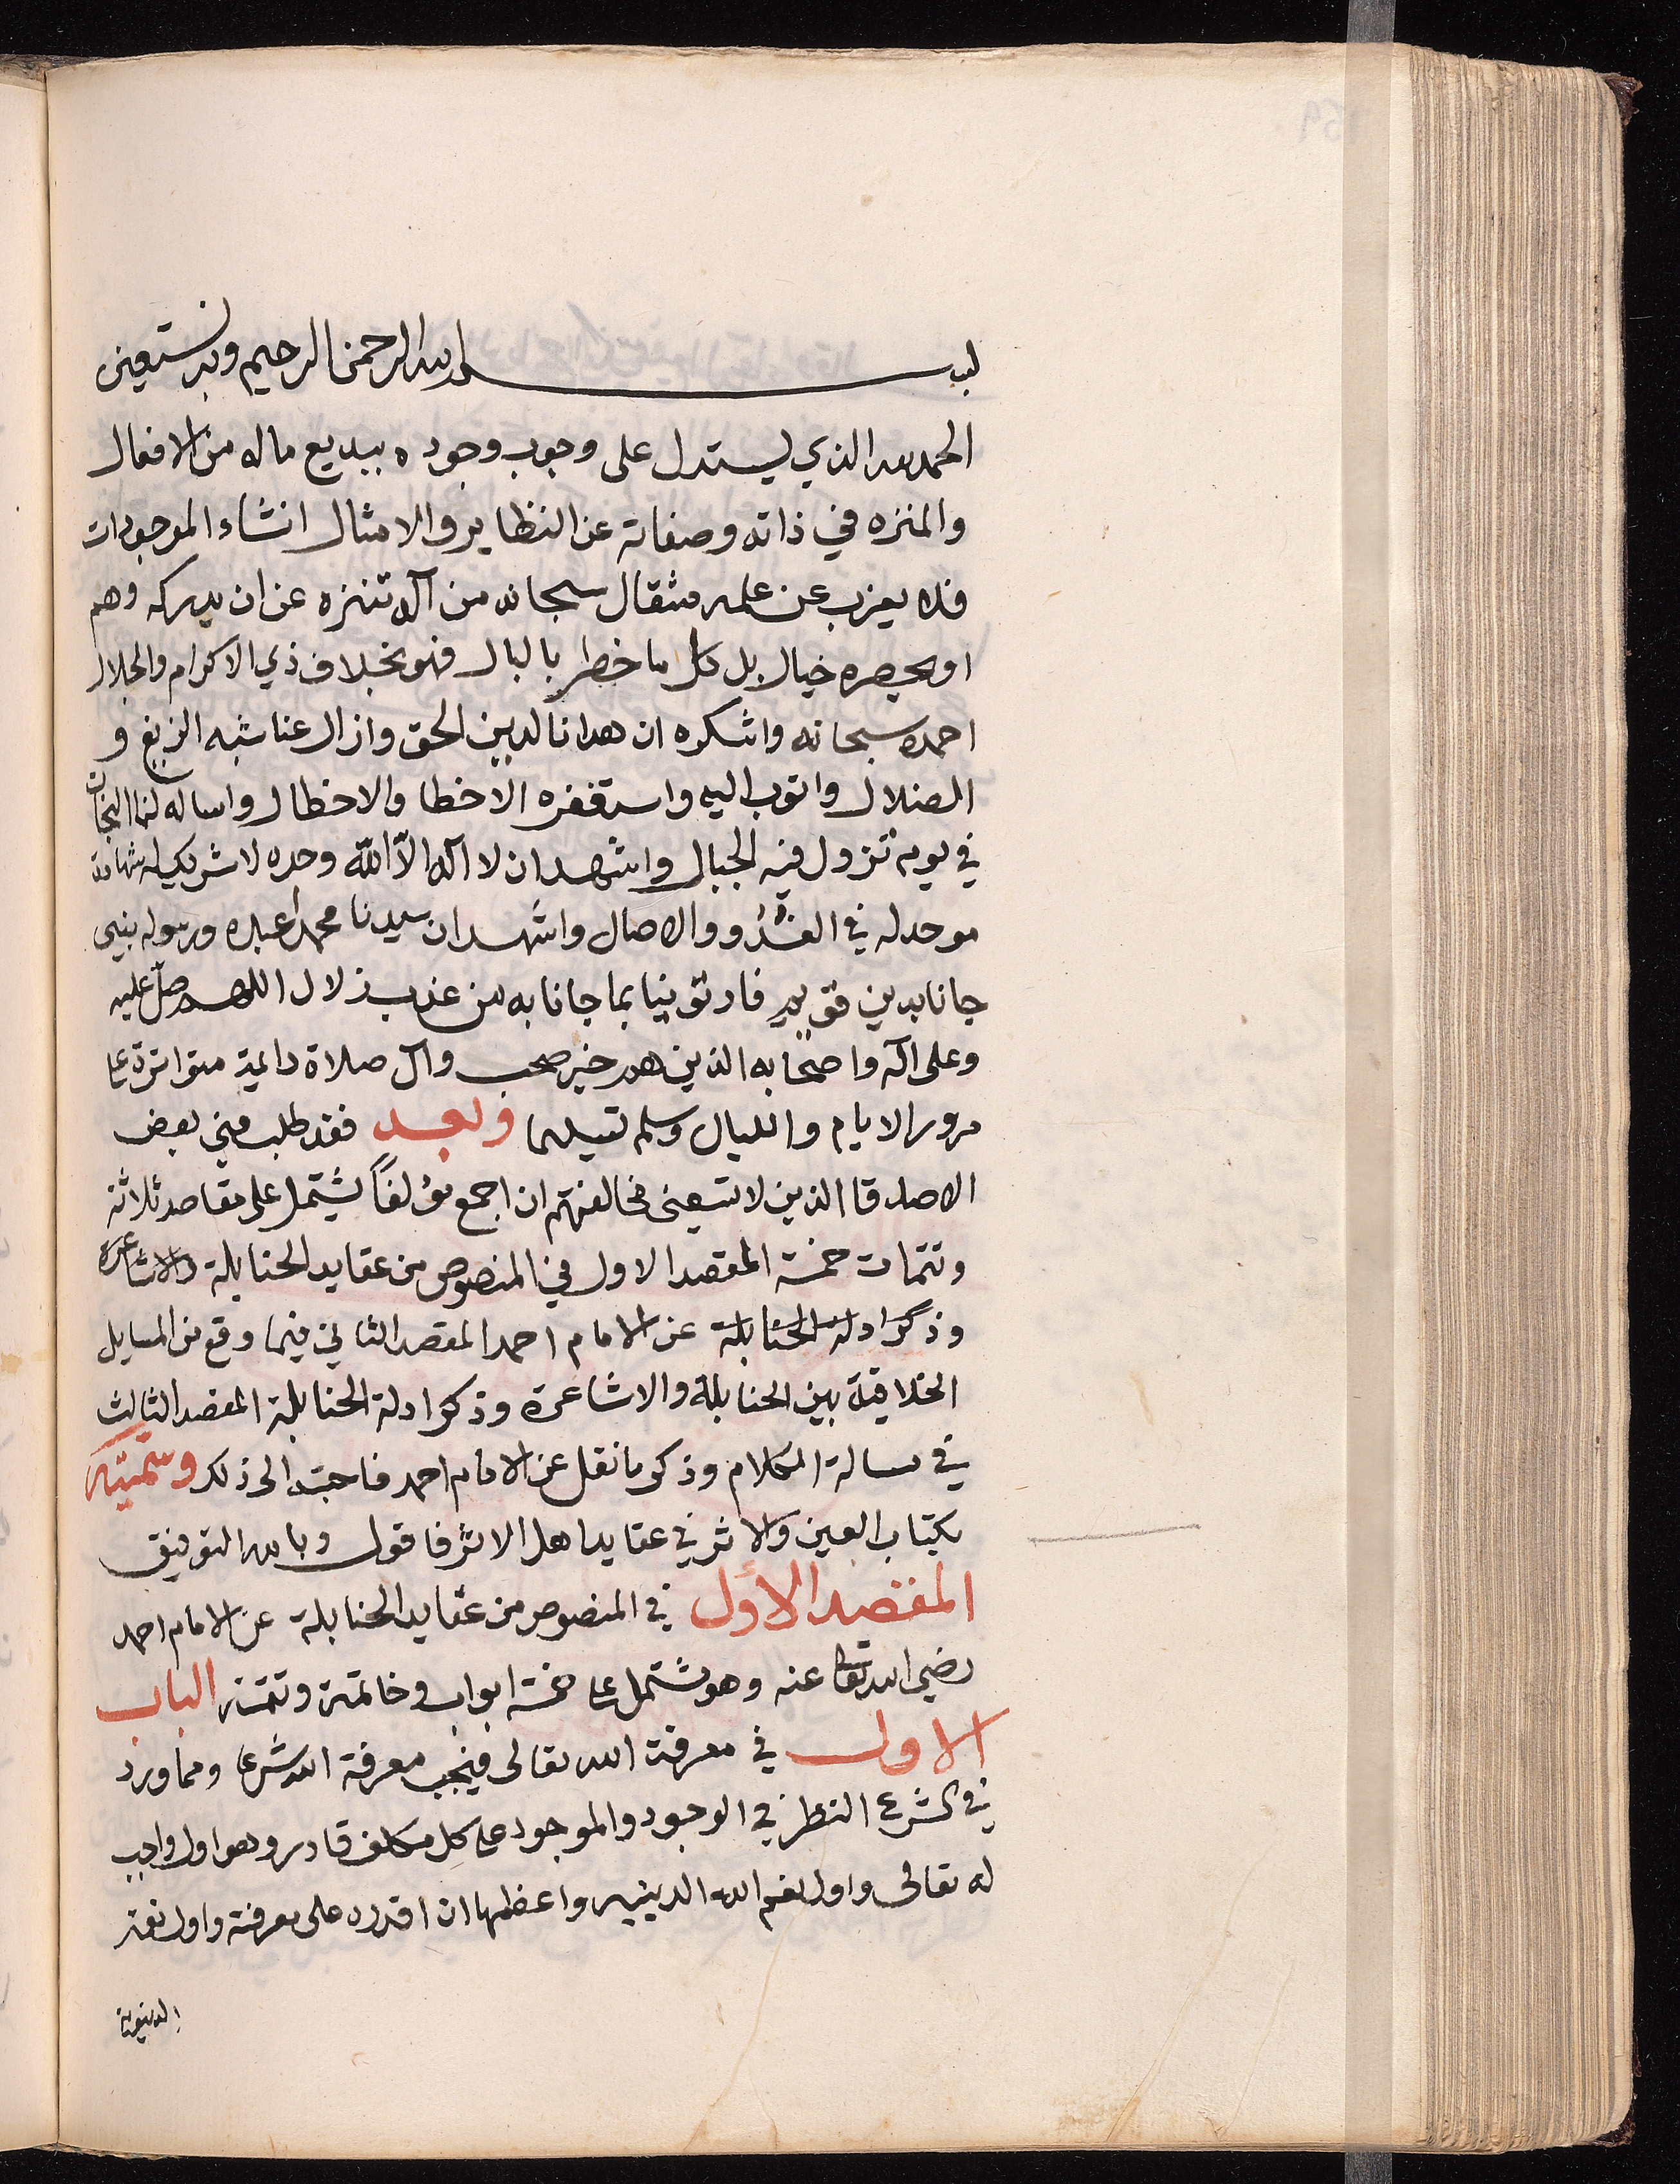 بسم الله الرحمن الرحيم وبه نستعين
الحمد لله الذي يستدل على وجوب وجوده ببديع ماله من الافعال
والمنزه في ذاته وصفاته عن النظاير والامثال انشاء الموجودات
فلا يعزب عن علمه مثقال سبحانه من آله تنزه عن ان يدركه وهم
او يحصره خيال بل كل ما خطر بالبال فهو بخلاف ذي الاكرام والجلال
احمده سبحانه واشكره ان هدانا لدين الحق وازال عنا شبه الزيغ و
الضلال واتوب اليه واستغفره الاخطا والاخطال واساله لنا النجات
في يوم تزول فيه الجبال واشهد ان لا اله الا الله وحده لا شريك له شهادة
موحد له في الغدو والاصال واشهد ان سيدنا محمدا عبده ورسوله نبي
جانا بدين قويم فارتوينا بما جانا به من عذب زلال اللهم صل عليه
وعلى اله واصحابه الذين هم خير صحب وآل صلاة دائمة متواترة على
مرور الايام والليال وسلم تسليما وبعد فقد طلب مني بعض
الاصدقا الذين لا تسعني مخالفتهم ان اجمع مؤلفاً يشتمل على مقاصد ثلاثة
وتتمات خمسة المقصد الاول في المنصوص من عقايد الحنابلة والاشاعرة
وذكر ادلة الحنابلة عن الامام احمد المقصد الثاني فيما وقع من المسايل
الخلافية بين الحنابلة والاشاعرة وذكر ادلة الحنابلة المقصد الثالث
في مسالة الكلام وذكر ما نقل عن الامام احمد فاجبته الى ذلك وسميته
بكتاب العين والاثر في عقايد اهل الاثر فاقول وبالله التوفيق
المقصد الأول في المنصوص من عقايد الحنابلة عن الامام احمد
رضي الله تعا عنه وهو يشتمل على خمسة ابواب وخاتمة وتتمة الباب
الاول في معرفة الله تعالى فيجب معرفة الله شرعا ومما ورد
في الشرع النظر في الوجود والموجود على كل مكلف قادر وهو اول واجب
له تعالى واول نعم الله الدينيه واعظمها ان اقدره على معرفته واول نعمة
الدنيوية